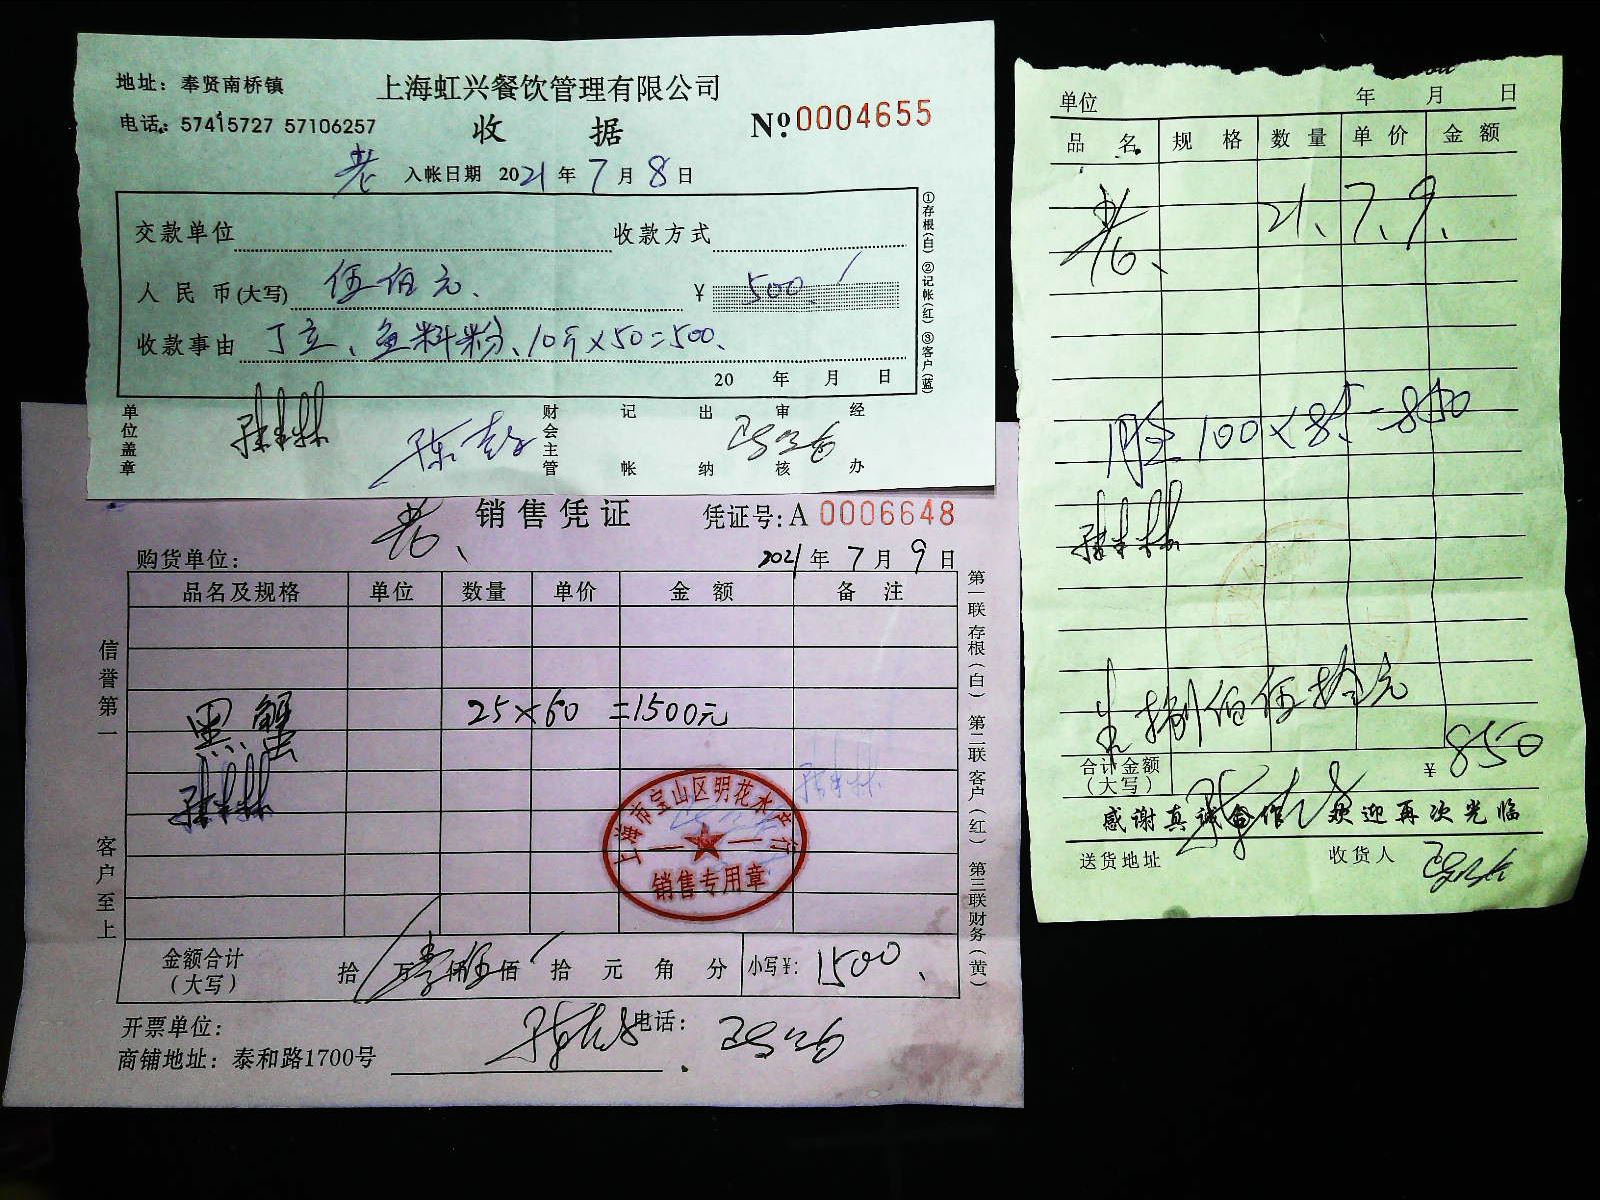 地址：奉贤南桥镇 上海虹兴餐饮管理有限公司
电话：57415727 57106257 收据 №0004655
老 入帐日期 2021年7月8日
交款单位 收款方式
人民币(大写) 伍佰元、 ¥ 500.
收款事由 丁立、鱼料粉、10斤×50=500、
20 年 月 日
单位盖章 财会主管 记帐 出纳 审核 经办
①存根(白) ②记帐(红) ③客户(蓝)
老、 销售凭证 凭证号：A 0006648
购货单位： 2021年7月9日
品名及规格 单位 数量 单价 金额 备注
黑蟹 25×60 =1500元
上海市宝山区明花水产行
销售专用章
金额合计（大写） 拾 万 仟 伍佰 拾 元 角 分 小写¥：1500、
开票单位： 电话：
商铺地址：泰和路1700号
信誉第一 客户至上
第一联存根(白) 第二联客户(红) 第三联财务(黄)
单位 年 月 日
品名 规格 数量 单价 金额
老、 21、7、9、
100×8.5=850
捌佰伍拾元
合计金额（大写） ¥ 850
感谢真诚合作 欢迎再次光临
送货地址 收货人